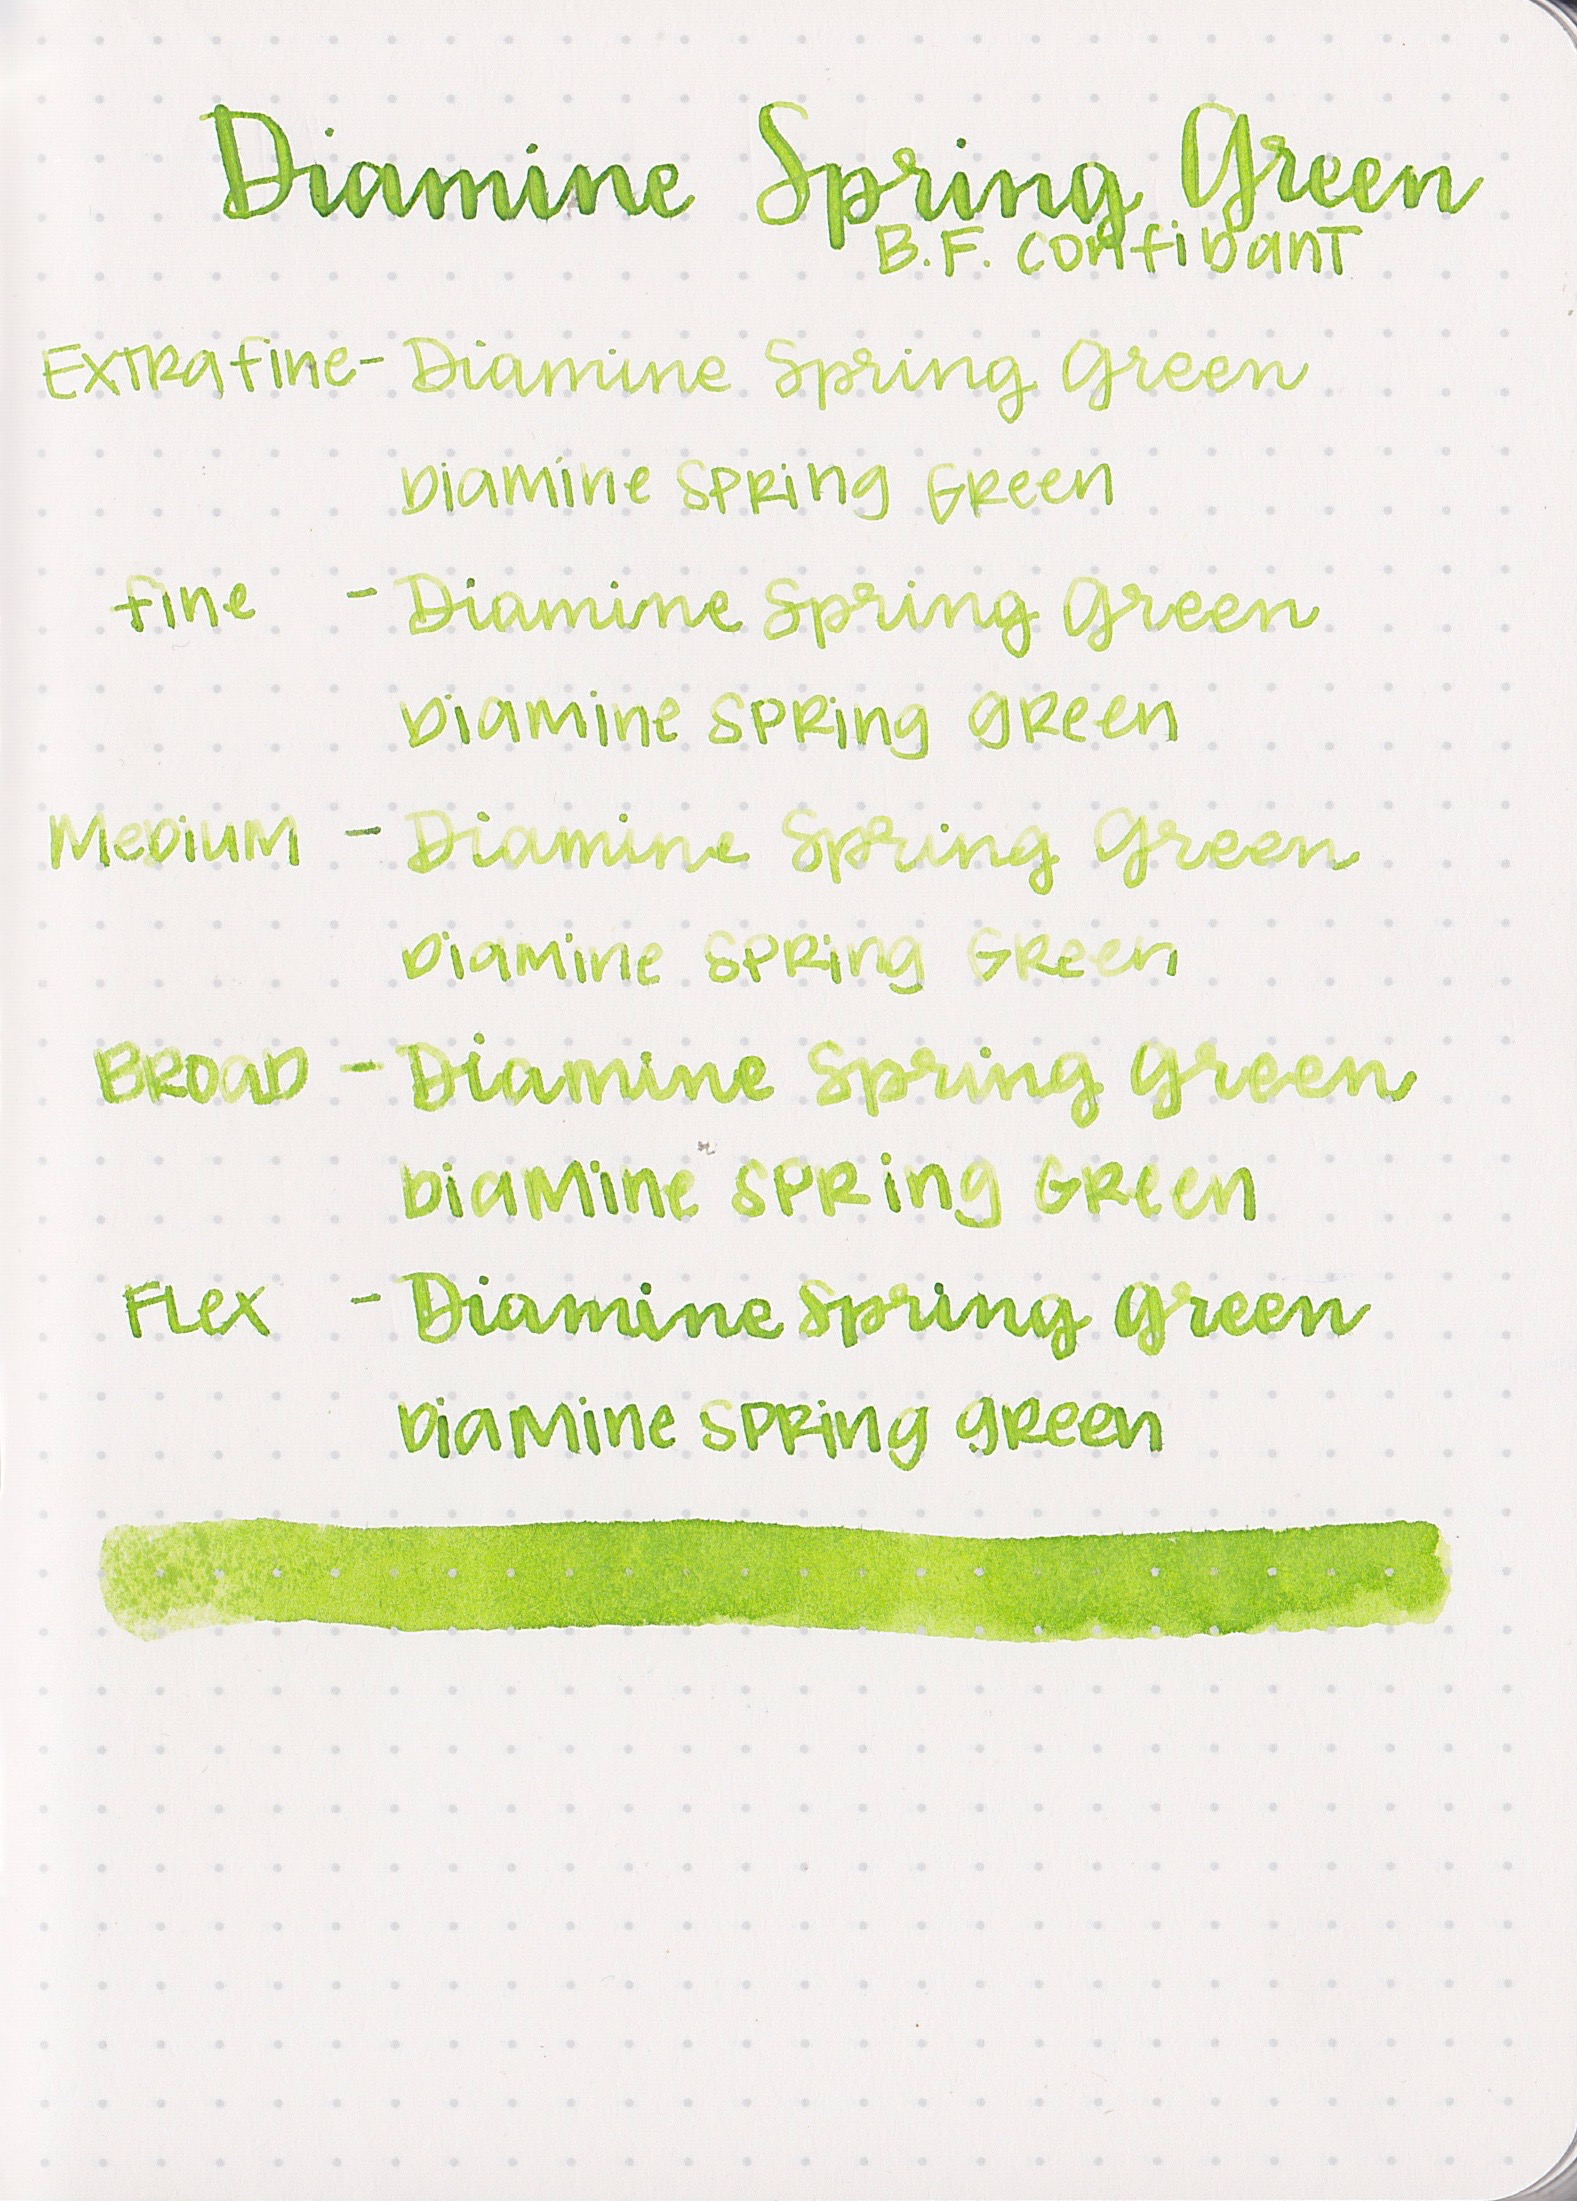 Diamine Spring Green
B.F. Confidant
Extra fine - Diamine Spring Green
Diamine Spring Green
fine - Diamine Spring Green
Diamine Spring green
Medium - Diamine Spring Green
Diamine Spring Green
Broad - Diamine Spring Green
Diamine Spring Green
Flex - Diamine Spring Green
Diamine Spring green